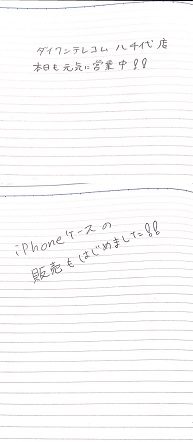 ダイワンテレコム 八千代店
本日も元気に営業中!!
iPhoneケースの
販売もはじめました!!